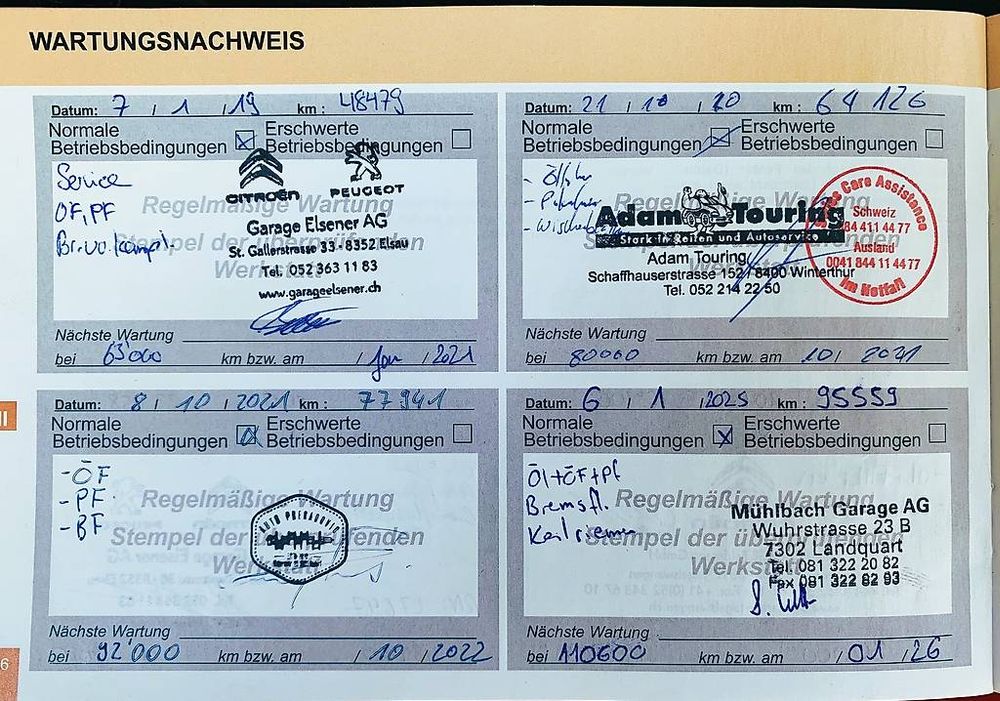 WARTUNGSNACHWEIS
Datum: 7 / 1 / 19 km : 48479
Normale Betriebsbedingungen
Erschwerte Betriebsbedingungen
Service
ÖF, PF
Br.vo. kompl.
Regelmäßige Wartung
Stempel der überprüfenden
Werkstatt
CITROËN PEUGEOT
Garage Elsener AG
St. Gallerstrasse 33 - 8352 Elsau
Tel. 052 363 11 83
www.garageelsener.ch
Nächste Wartung
bei 63000 km bzw. am / Jan / 2021
Datum: 21 / 10 / 20 km : 64 126
Normale Betriebsbedingungen
Erschwerte Betriebsbedingungen
- Ölfilter
Regelmäßige Wartung
Stempel der überprüfenden
Werkstatt
Adam Touring
Stark in Reifen und Autoservice
Adam Touring
Schaffhauserstrasse 152 / 8400 Winterthur
Tel. 052 214 22 50
Care Assistance
Schweiz
84 411 44 77
Ausland
0041 844 11 44 77
im Notfall
Nächste Wartung
bei 80000 km bzw. am 10 / 2021
Datum: 8 / 10 / 2021 km : 77941
Normale Betriebsbedingungen
Erschwerte Betriebsbedingungen
- ÖF
- PF
- BF
Regelmäßige Wartung
Stempel der überprüfenden
Werkstatt
AUTO
Nächste Wartung
bei 92'000 km bzw. am / 10 / 2022
Datum: 6 / 1 / 2025 km : 95559
Normale Betriebsbedingungen
Erschwerte Betriebsbedingungen
Öl+ÖF+Pf
Bremsfl.
Keilriemen
Regelmäßige Wartung
Stempel der überprüfenden
Werkstatt
Mühlbach Garage AG
Wuhrstrasse 23 B
7302 Landquart
Tel. 081 322 20 82
Fax 081 322 82 93
Nächste Wartung
bei 110600 km bzw. am / 01 / 26
6